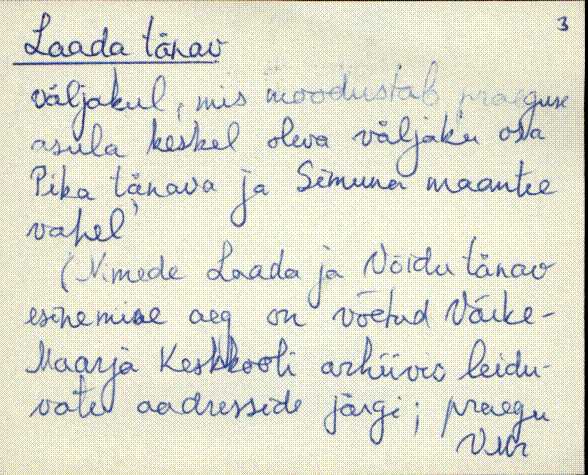 3
Laada tänav
väljakul, mis moodustab praeguse
asula keskel oleva väljaku osa
Pika tänava ja Simuna maantee
vahel'
(Nimede Laada ja Võidu tänav
esinemise aeg on võetud Väike-
Maarja Keskkooli arhiivis leidu-
vate aadresside järgi; praegu